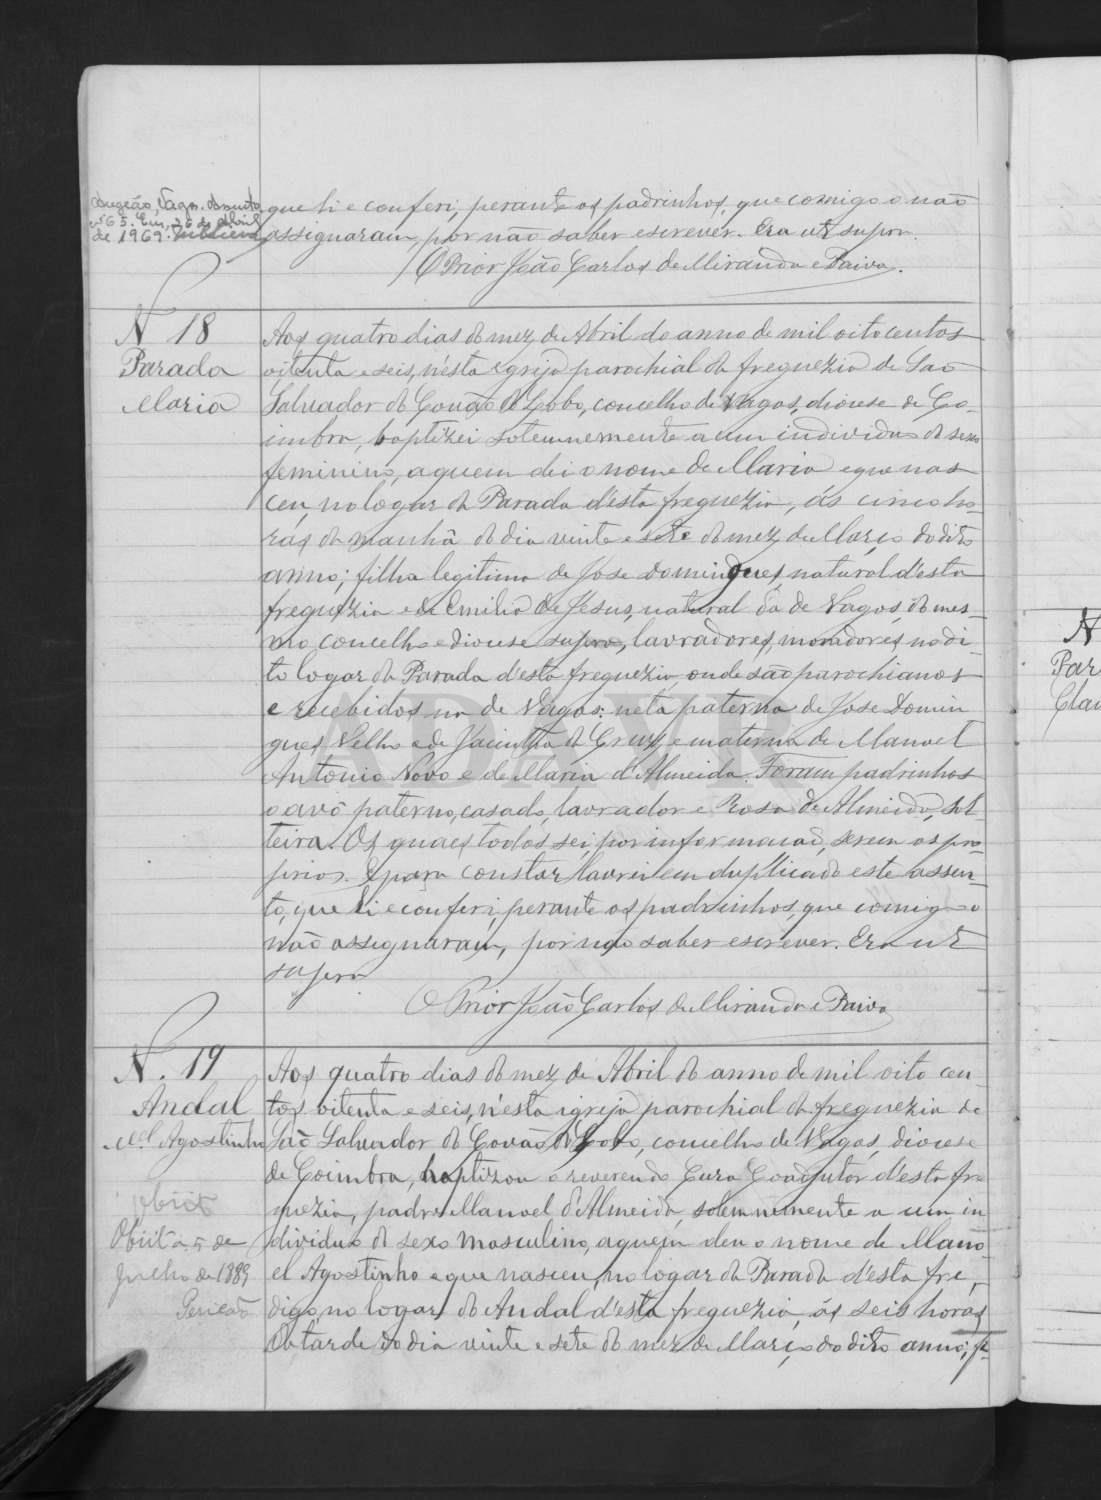 que li e conferi, perante os padrinhos, que comigo o não
de 1969.
assignaram, por não saber escrever. Era ut supra.
O Prior João Carlos de Miranda e Paiva.
N 18
Parada
Maria
Aos quatro dias do mez de Abril do anno de mil oito centos
oitenta e seis, n'esta egreja parochial da freguezia de São
Salvador do Covão do Lobo, concelho de Vagos, diocese de Co-
imbra, baptizei solemnemente a um individuo do sexo
feminino, a quem dei o nome de Maria e que nas
ceu, no logar da Parada d'esta freguezia, ás cinco ho-
ras da manhã do dia vinte e sete do mez de Março do dito
anno; filha legitima de Jose Domingues, natural d'esta
freguezia e de Emilia de Jesus, natural da de Vagos, do mes-
mo concelho e diocese supra, lavradores, moradores no di-
to logar da Parada d'esta freguezia onde são parochianos
e recebidos na de Vagos: neta paterna de Jose Domin
gues Velho e de Jacintha da Cruz, e materna de Manoel
Antonio Novo e de Maria d'Almeida. Foram padrinhos
o avô paterno, casado, lavrador e Rosa de Almeida, sol-
teira. Os quaes todos sei, por informacão, serem os pro-
prios. E para constar lavrei em duplicado este assen-
to, que li e conferi, perante os padrinhos, que comigo o
não assignaram, por não saber escrever. Era ut
supra
O Prior João Carlos de Miranda e Paiva
N. 19
Andal
Mel Agostinho
Aos quatro dias do mez de Abril do anno de mil oito cen-
tos oitenta e seis, n'esta igreja parochial da freguezia de
São Salvador do Covão do Lobo, concelho de Vagos, diocese
de Coimbra, baptizou o reverendo Cura Coadjutor d'esta fre
guezia, padre Manoel d'Almeida, solemnemente a um in
dividuo do sexo masculino, a quem deu o nome de Mano
el Agostinho e que nasceu, no logar da Parada d'esta fre,
digo, no logar do Andal d'esta freguezia, ás seis horas
da tarde do dia vinte e sete do mez de Março do dito anno; fi-
Obiit
Obiit a 5 de
Julho de 1889
N
Par
ADAVR